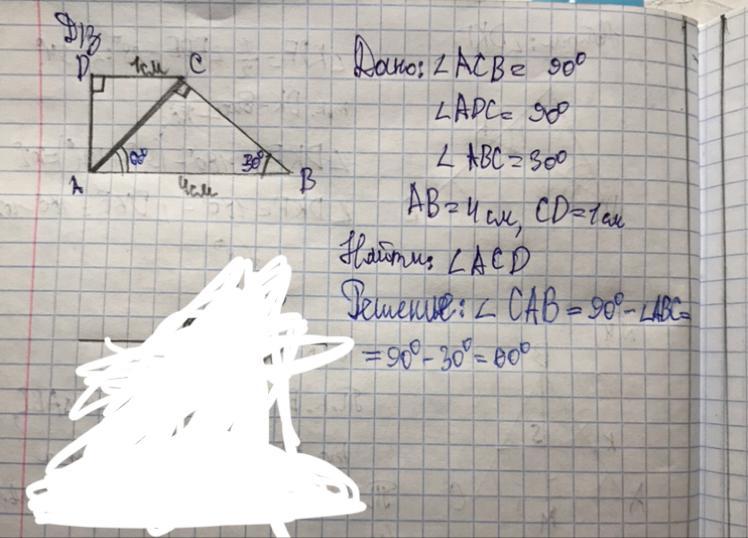 Д/З
D 1см C
60° 30°
A 4см B
Дано: ∠ACB = 90°
∠ADC = 90°
∠ABC = 30°
AB = 4 см, CD = 1 см
Найти: ∠ACD
Решение: ∠CAB = 90° - ∠ABC =
= 90° - 30° = 60°